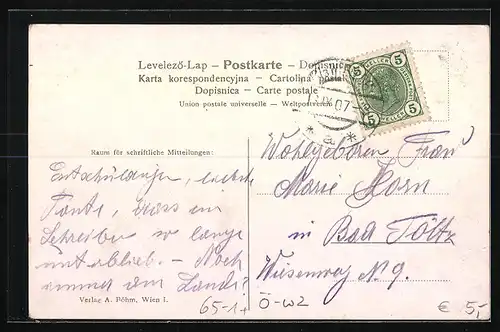 Levelező-Lap – Postkarte – Dopisnice
Karta korespondencyjna – Cartolina
Dopisnica – Carte postale
Union postale universelle – Weltpostverein
5 HELLER 5
5 5
IX 07
* a *
Raum für schriftliche Mitteilungen:
Entschuldigen, liebste
Tante, dass ein
Schreiben so lange
unterblieb. – Noch
immer am Lande?
Wohlgeboren Frau
Marie Horn
in Bad Tölz
Wiesenweg N 9.
Verlag A. Böhm, Wien I.
65-1+
Ö-W2
€ 5,-